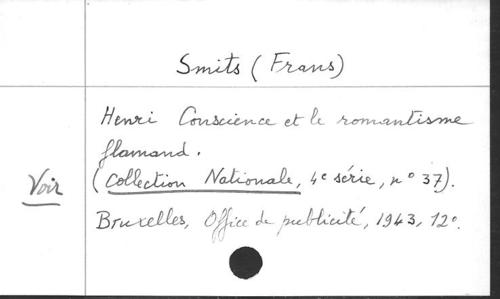 Smits (Frans)
Henri Conscience et le romantisme
flamand.
Voir (Collection Nationale, 4e série, n° 37).
Bruxelles, Office de publicité, 1943, 12°.